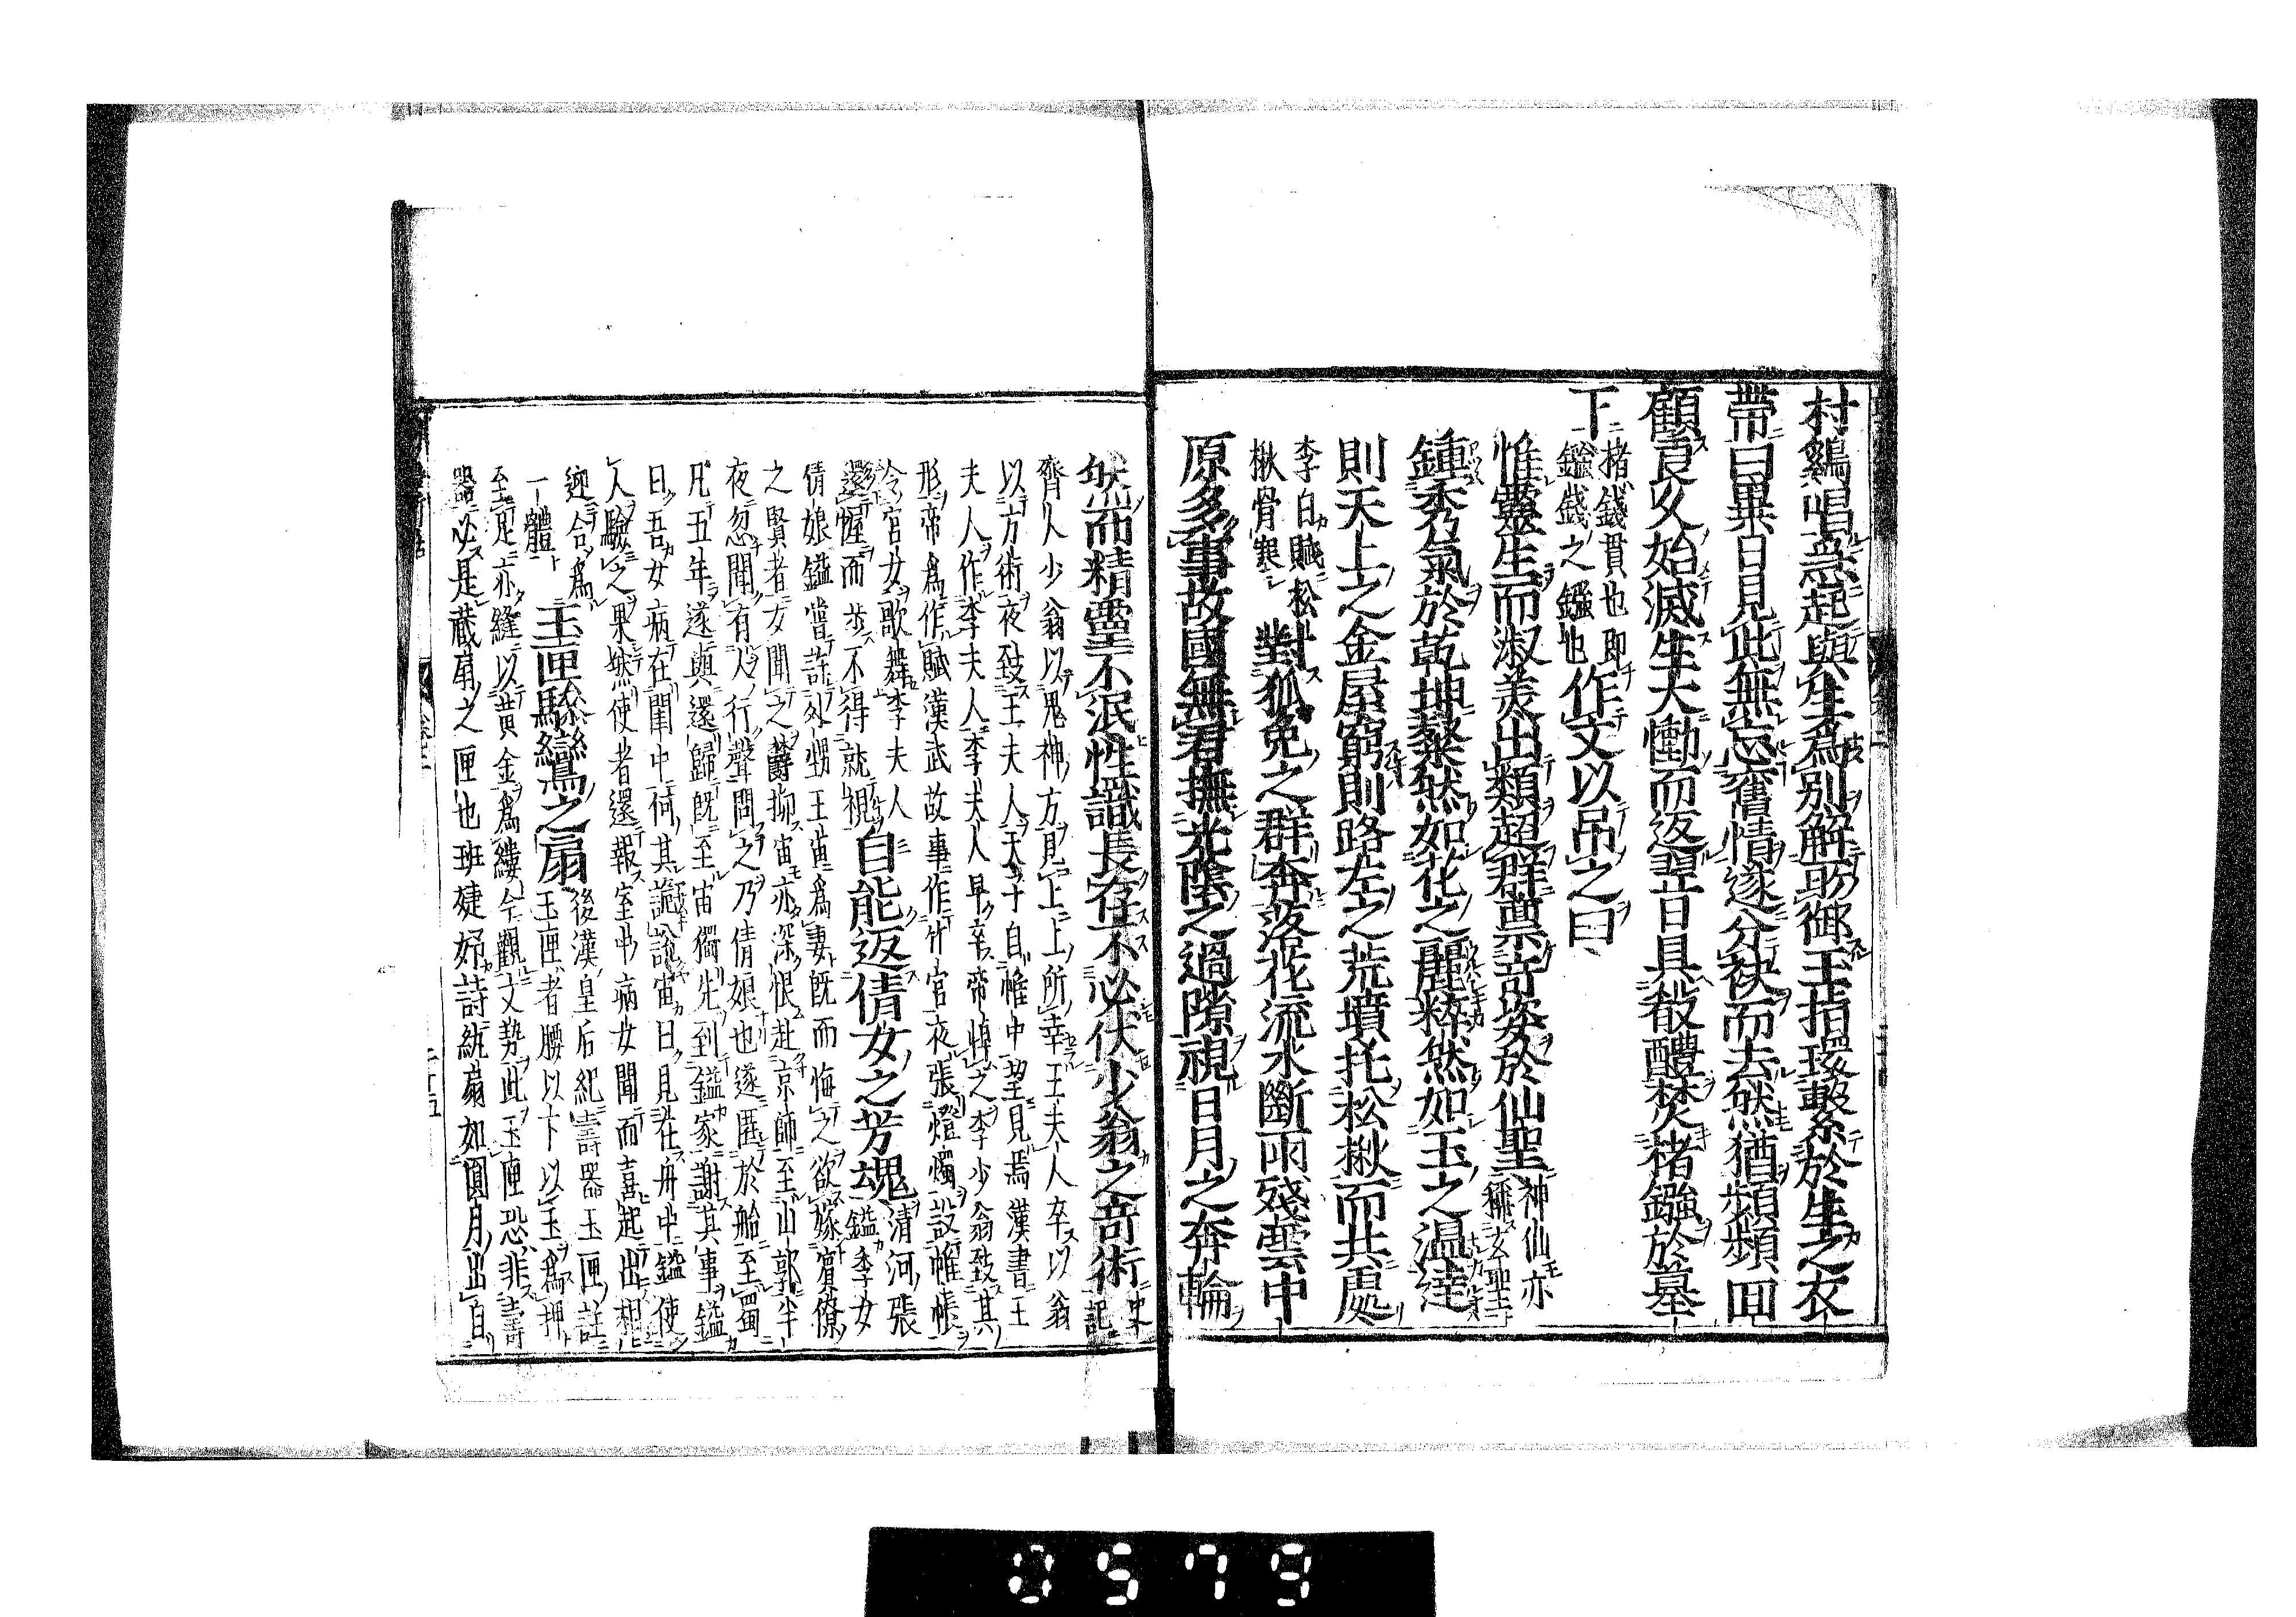 村鷄唱急起與生爲別解所御玉指環繫於生之衣
帶曰異日見此無忘舊情遂分袂而去然猶頻頻回
顧良久始滅生大慟而返翌日具殽醴焚楮鏹於墓
下
楮錢貫也即
鏹錢之鏹也
作文以吊之曰
惟靈生而淑美出類超群稟奇姿於仙聖
神仙亦
稱玄聖
鍾秀氣於乾坤粲然如花之麗粹然如玉之温達
則天上之金屋窮則路左之荒墳托松楸而共處
李白賦松
楸骨寒
對狐兔之群奔落花流水斷雨殘雲中
原多事故國無君撫光陰之過隙視日月之奔輪
然而精靈不泯性識長存不必伏少翁之奇術
史
記
齊人少翁以鬼神方見上上所幸王夫人卒以翁
以方術夜致王夫人天子自帷中望見焉漢書王
夫人作李夫人李夫人早卒帝悼之李少翁致其
形帝爲作賦漢武故事作竹宮夜張燈燭設帷帳
令宮女歌舞李夫人
還幄而步不得就視
自能返倩女之芳魂
清河張
鎰李女
倩娘鎰嘗許外甥王宙爲妻既而悔之欲嫁賓僚
之賢者女聞之鬱抑宙亦深恨赴京師至山郭半
夜忽聞有人行聲問之乃倩娘也遂匿於船至蜀
凡五年遂與還歸既至宙獨先到鎰家謝其事鎰
曰吾女病在閨中何其詭說宙曰見在舟中鎰使
人驗之果然使者還報室中病女聞而喜起出相
迎合爲
一體
玉匣驂鸞之扇
後漢皇后紀壽器玉匣註
玉匣者腰以下以玉爲押
至足亦縫以黄金爲縷今觀文勢此玉匣恐非壽
器必是藏扇之匣也班婕妤詩紈扇如圓月出自
二十五
0579